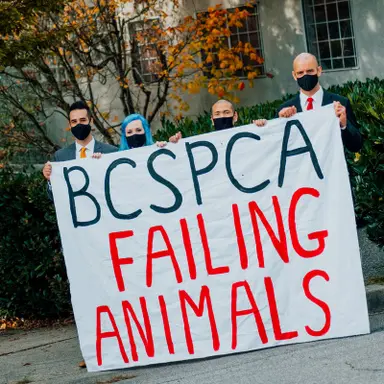 BCSPCA
FAILING
ANIMALS